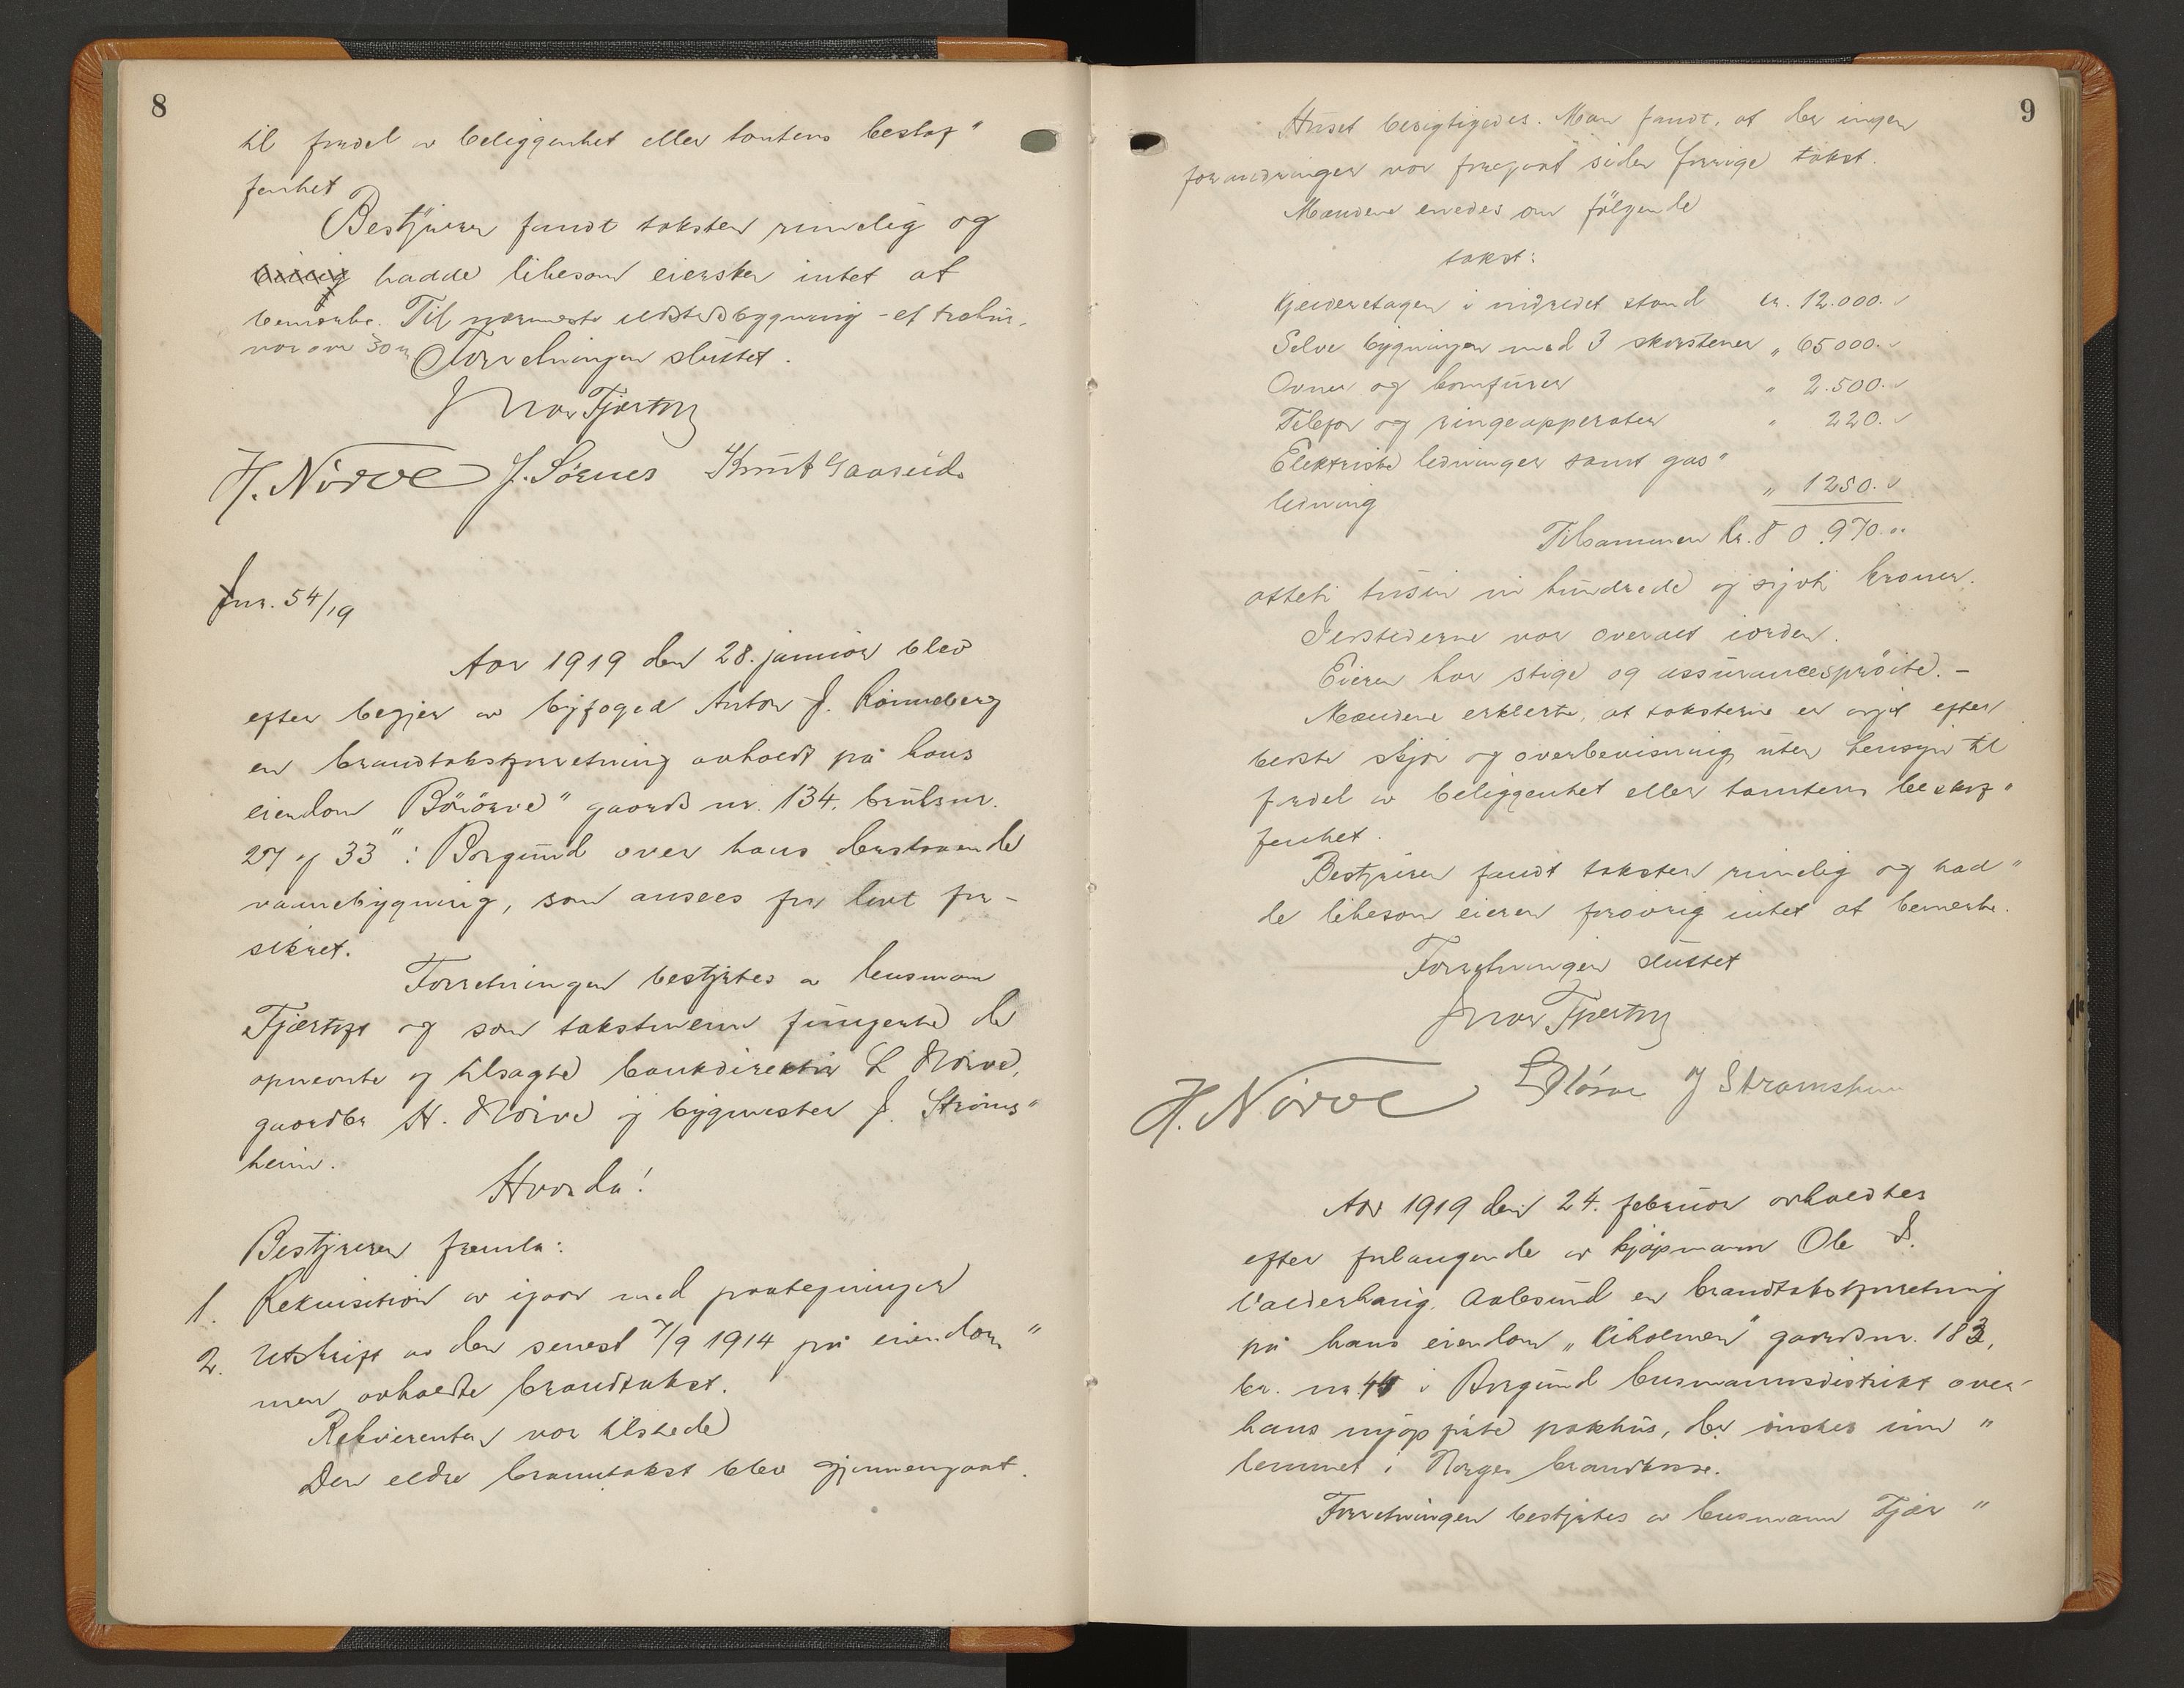 8
til fordel av beliggenhet eller tomtens beskaf"
fenhet
Bestyreren fandt taksten rimelig og
hadde likesom eiersken intet at
bemerke. Til nærmeste ildstedsbygning - et træhus,
var over 30 m
Forretningen sluttet.
Ivar Tjærtoft
H. Nörve J. Sörnes Knut Gaaseide
Jnr. 54/19
Aar 1919 den 28. januar blev
efter begjær av byfoged Anton J. Rönneberg
en brandtakstforretning avholdt på hans
eiendom gaards nr. 134. bruksnr.
27 og 33" i Borgund over hans derstaaende
vaanebygning, som ansees for lavt for-
sikret.
Forretningen bestyrtes av lensmann
Tjærtoft og som takstmenn fungerte de
opnevnte og tilsagte bankdirektör L Nörve,
gaardbr H. Nörve og bygmester J. Ströms"
heim.
Hvorda!
Bestyreren fremla:
1. Rekvisition av igaar med paategninger
2. Utskrift av den senest 7/9 1914 på eiendom"
men avholdte brandtakst.
Rekvirenten var tilstede
Den eldre branntakst blev gjennemgaat.
9
Huset besigtigedes. Man fandt, at der ingen
forandringer var foregaat siden forrige takst.
Mændene enedes om fölgende
takst:
Kjelderetagen i indredet stand kr. 12.000.
Selve bygningen med 3 skorstener " 65000.
Ovner og komfurer " 2.500.
Telefon og ringeapparater " 220.
Elektriske ledninger samt gas"
ledning " 1250.
Tilsammen kr. 80.970.
otteti tusin ni hundrede og sytti kroner.
Ildstederne var overalt iorden.
Eieren har stige og assurancespröite. -
Mændene erklerte, at taksterne er avgit efter
beste skjön og overbevisning uten hensyn til
fordel av beliggenhet eller tomtens beskaf"
fenhet.
Bestyreren fandt taksten rimelig og had"
de likesom eieren forövrig intet at bemerke.
Forretningen sluttet
Ivar Tjærtoft
H. Nörve L Nörve J Strömsheim
Aar 1919 den 24. februar avholdtes
efter forlangende av kjöpmann Ole S.
Valderhaug, Aalesund en brandtakstforretning
på hans eiendom „Kiholmen" gaardsnr. 183,
br. nr 44 i Borgund lensmannsdistrikt over
hans nyopförte pakhus, der önskes inn"
lemmet i Norges brandkasse.
Forretningen bestyrtes av lensmann Tjær"